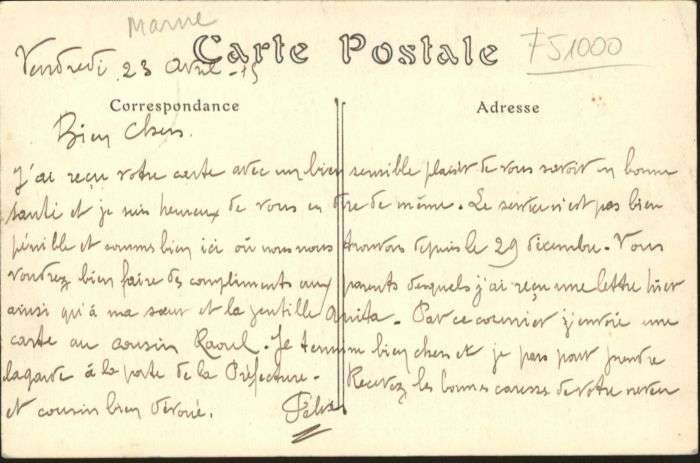 Marne
Carte Postale
751000
Vendredi 23 avril - 15
Correspondance
Adresse
Bien chers.
J'ai reçu votre carte avec un bien sensible plaisir de vous savoir en bonne
santé et je suis heureux de vous en dire de même. Le service n'est pas bien
pénible et sommes bien ici où nous nous trouvons depuis le 29 décembre. Vous
voudrez bien faire des compliments aux parents desquels j'ai reçu une lettre hier
ainsi qu'à ma sœur et la gentille Anita. Par ce courrier j'envoie une
carte au cousin Raoul. Je termine bien chers et je pars pour prendre
la garde à la porte de la Préfecture. Recevez les bonnes caresses de votre neveu
et cousin bien dévoué. Félix